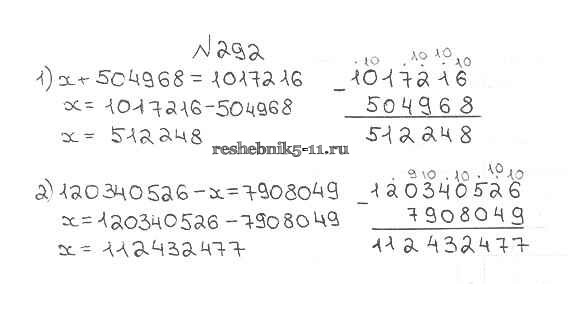 №292
1) x + 504968 = 1017216
x = 1017216 - 504968
x = 512248
. 10 . 10 10 . 10
- 1017216
504968
512248
reshebnik5-11.ru
2) 120340526 - x = 7908049
x = 120340526 - 7908049
x = 112432477
. 9 10 . 10 . 10 10
- 120340526
7908049
112432477